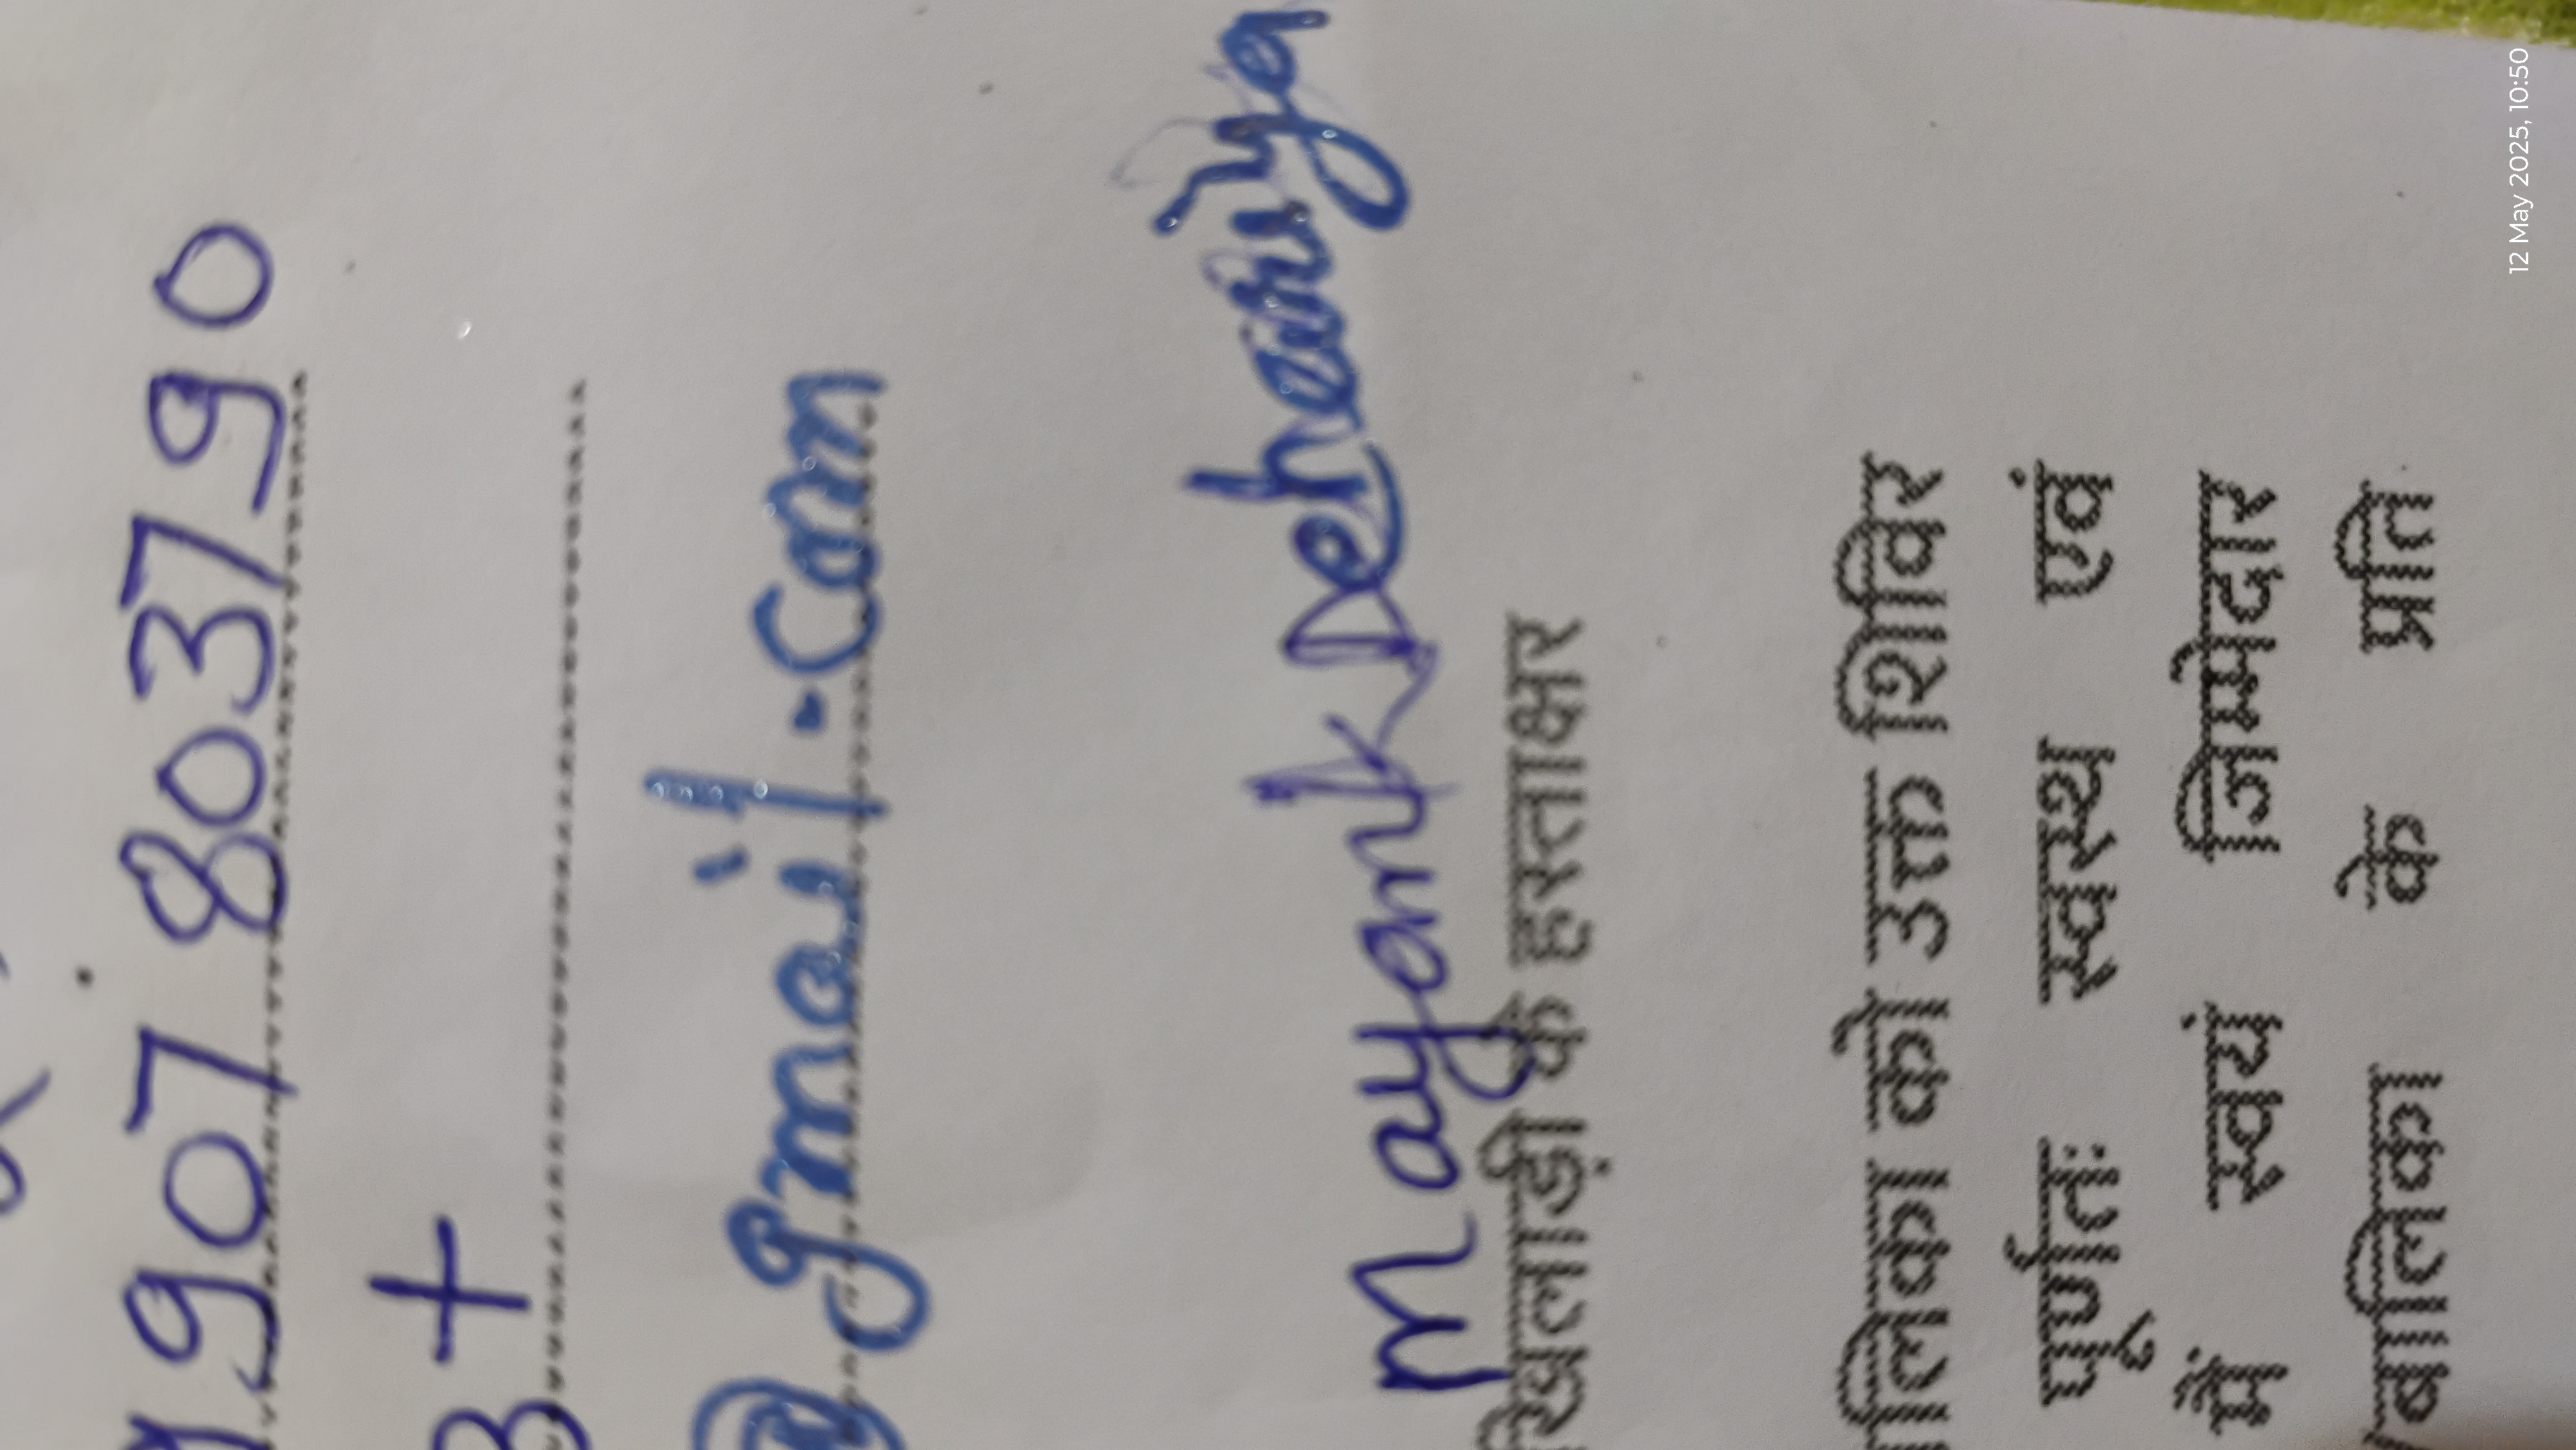 907 803790
+
@ gmail.com
Mayank Deheariya
खिलाड़ी के हस्ताक्षर
लिका को उक्त शिविर
पूर्णतः स्वस्थ एवं
में स्वयं जिम्मेदार
बालिका के प्रति
12 May 2025, 10:50